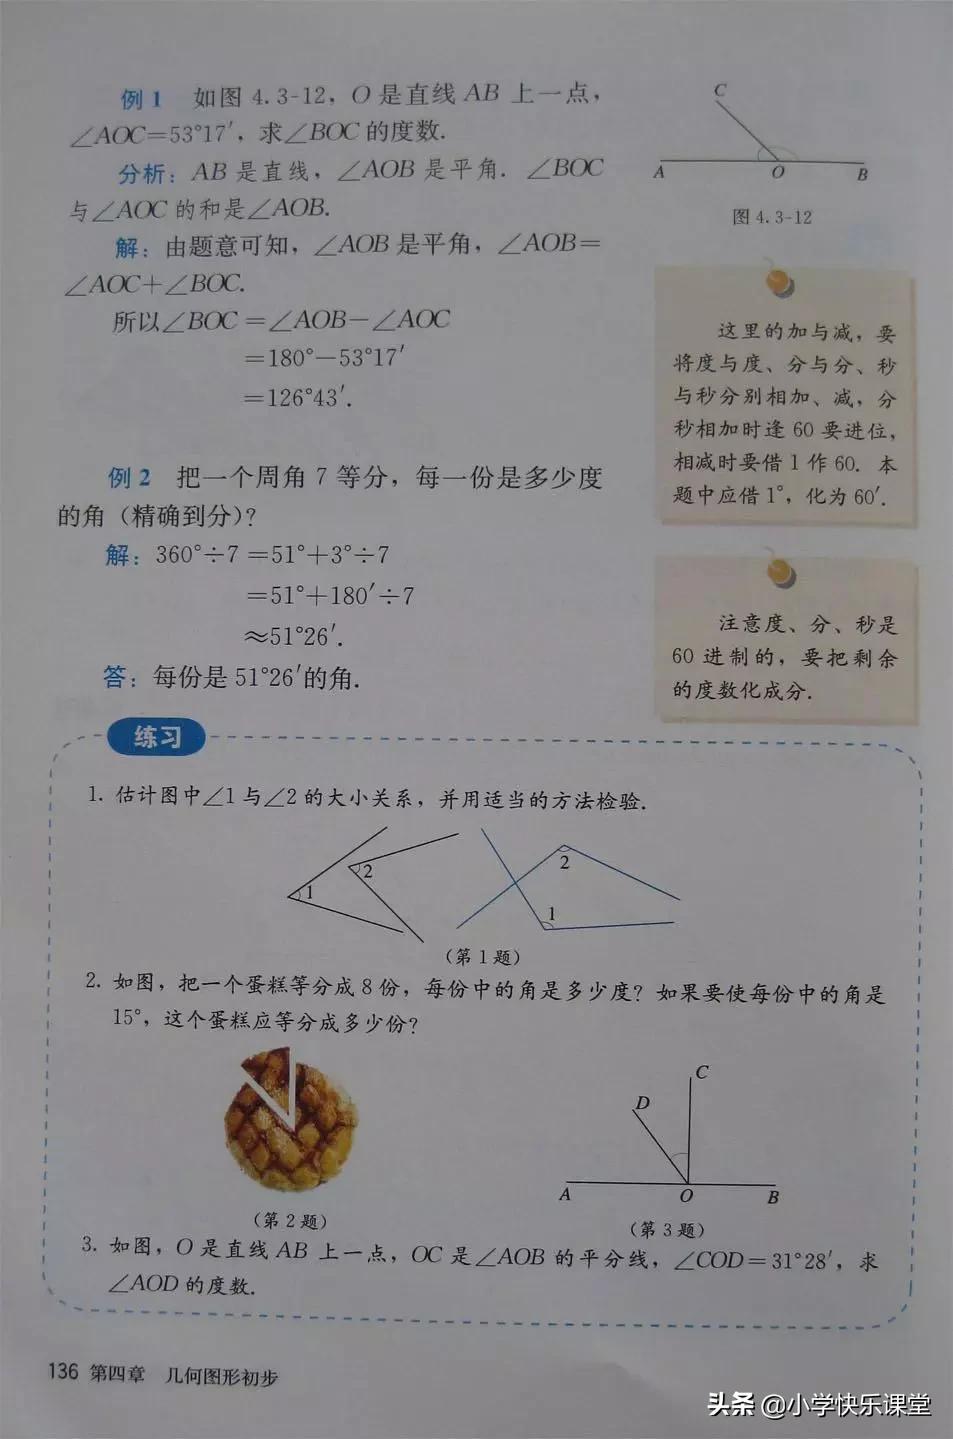 例 1 如图 4.3-12，O 是直线 AB 上一点，
∠AOC=53°17′，求∠BOC 的度数.
分析：AB 是直线，∠AOB 是平角. ∠BOC
与∠AOC 的和是∠AOB.
解：由题意可知，∠AOB 是平角，∠AOB=
∠AOC+∠BOC.
所以∠BOC =∠AOB-∠AOC
=180°-53°17′
=126°43′.
C
A
O
B
图 4.3-12
这里的加与减，要
将度与度、分与分、秒
与秒分别相加、减，分
秒相加时逢 60 要进位，
相减时要借 1 作 60. 本
题中应借 1°，化为 60′.
例 2 把一个周角 7 等分，每一份是多少度
的角（精确到分）？
解：360°÷7 =51°+3°÷7
=51°+180′÷7
≈51°26′.
答：每份是 51°26′的角.
注意度、分、秒是
60 进制的，要把剩余
的度数化成分.
练习
1. 估计图中∠1 与∠2 的大小关系，并用适当的方法检验.
1
2
1
2
（第 1 题）
2. 如图，把一个蛋糕等分成 8 份，每份中的角是多少度？如果要使每份中的角是
15°，这个蛋糕应等分成多少份？
（第 2 题）
C
D
A
O
B
（第 3 题）
3. 如图，O 是直线 AB 上一点，OC 是∠AOB 的平分线，∠COD=31°28′，求
∠AOD 的度数.
136 第四章 几何图形初步
头条 @小学快乐课堂